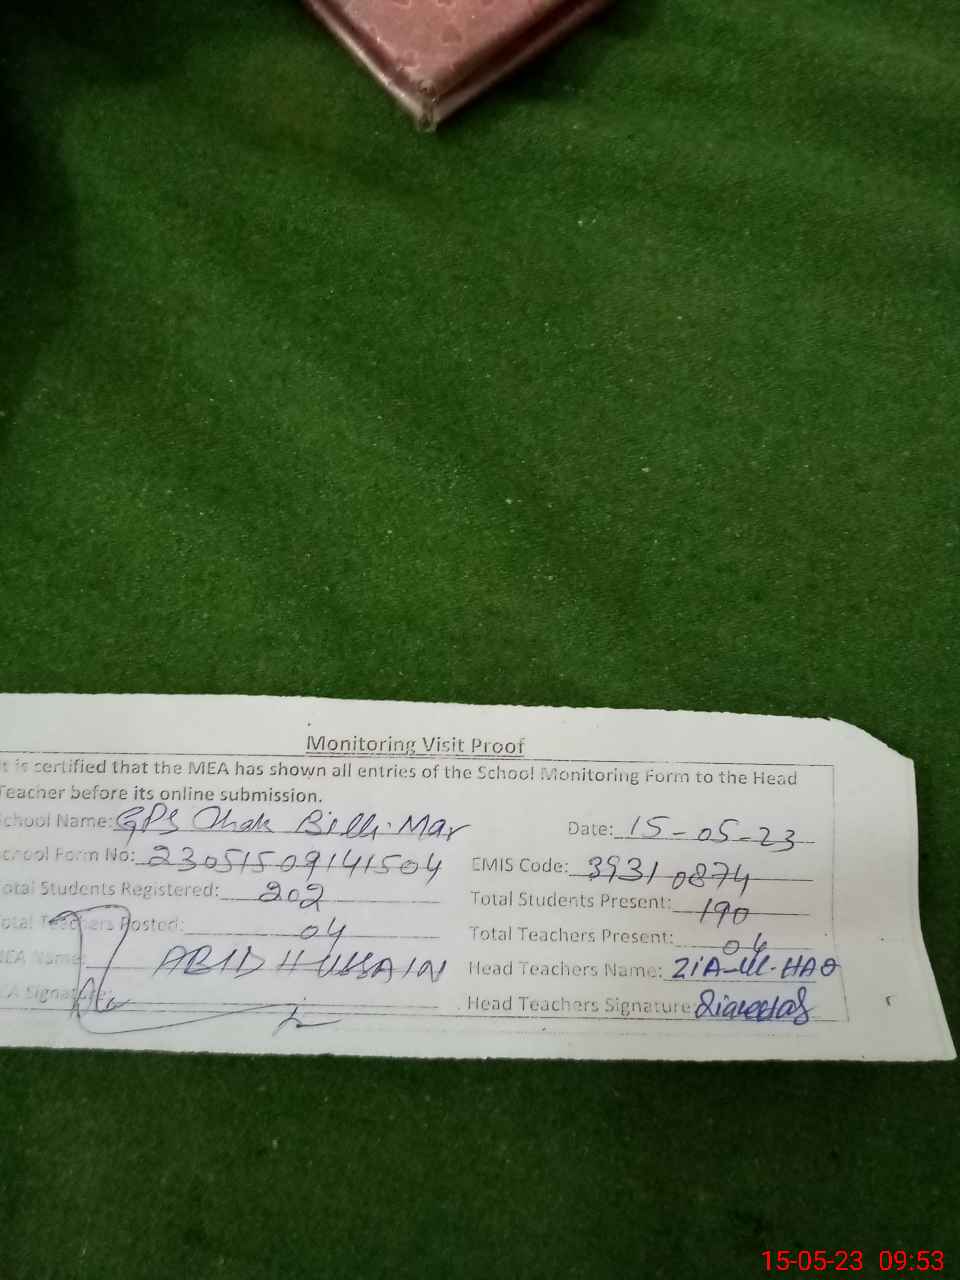 Monitoring Visit Proof
t is certified that the MEA has shown all entries of the School Monitoring Form to the Head
Teacher before its online submission.
chool Name: GPS Chak Billi. Mar Date: 15-05-23
chool Form No: 23051509141504 EMIS Code: 39310874
otal Students Registered: 202 Total Students Present: 190
otal Teachers Posted: 04 Total Teachers Present: 04
EA Name: ABID HUSSAIN Head Teachers Name: ZiA-Ul-HAQ
EA Signature: Head Teachers Signature:
15-05-23 09:53